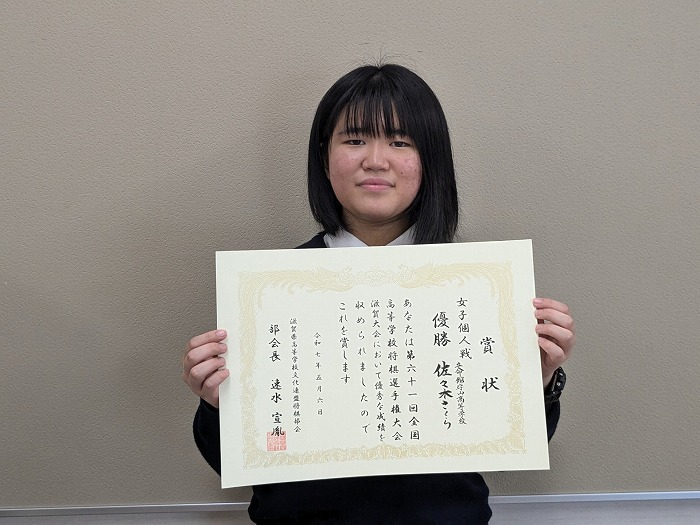 賞状
女子個人戦 立命館守山高等学校
優勝 佐々木さくら
あなたは第六十一回全国
高等学校将棋選手権大会
滋賀大会において優秀な成績を
収められましたので
これを賞します
令和七年五月六日
滋賀県高等学校文化連盟将棋部会
部会長 速水 宣胤